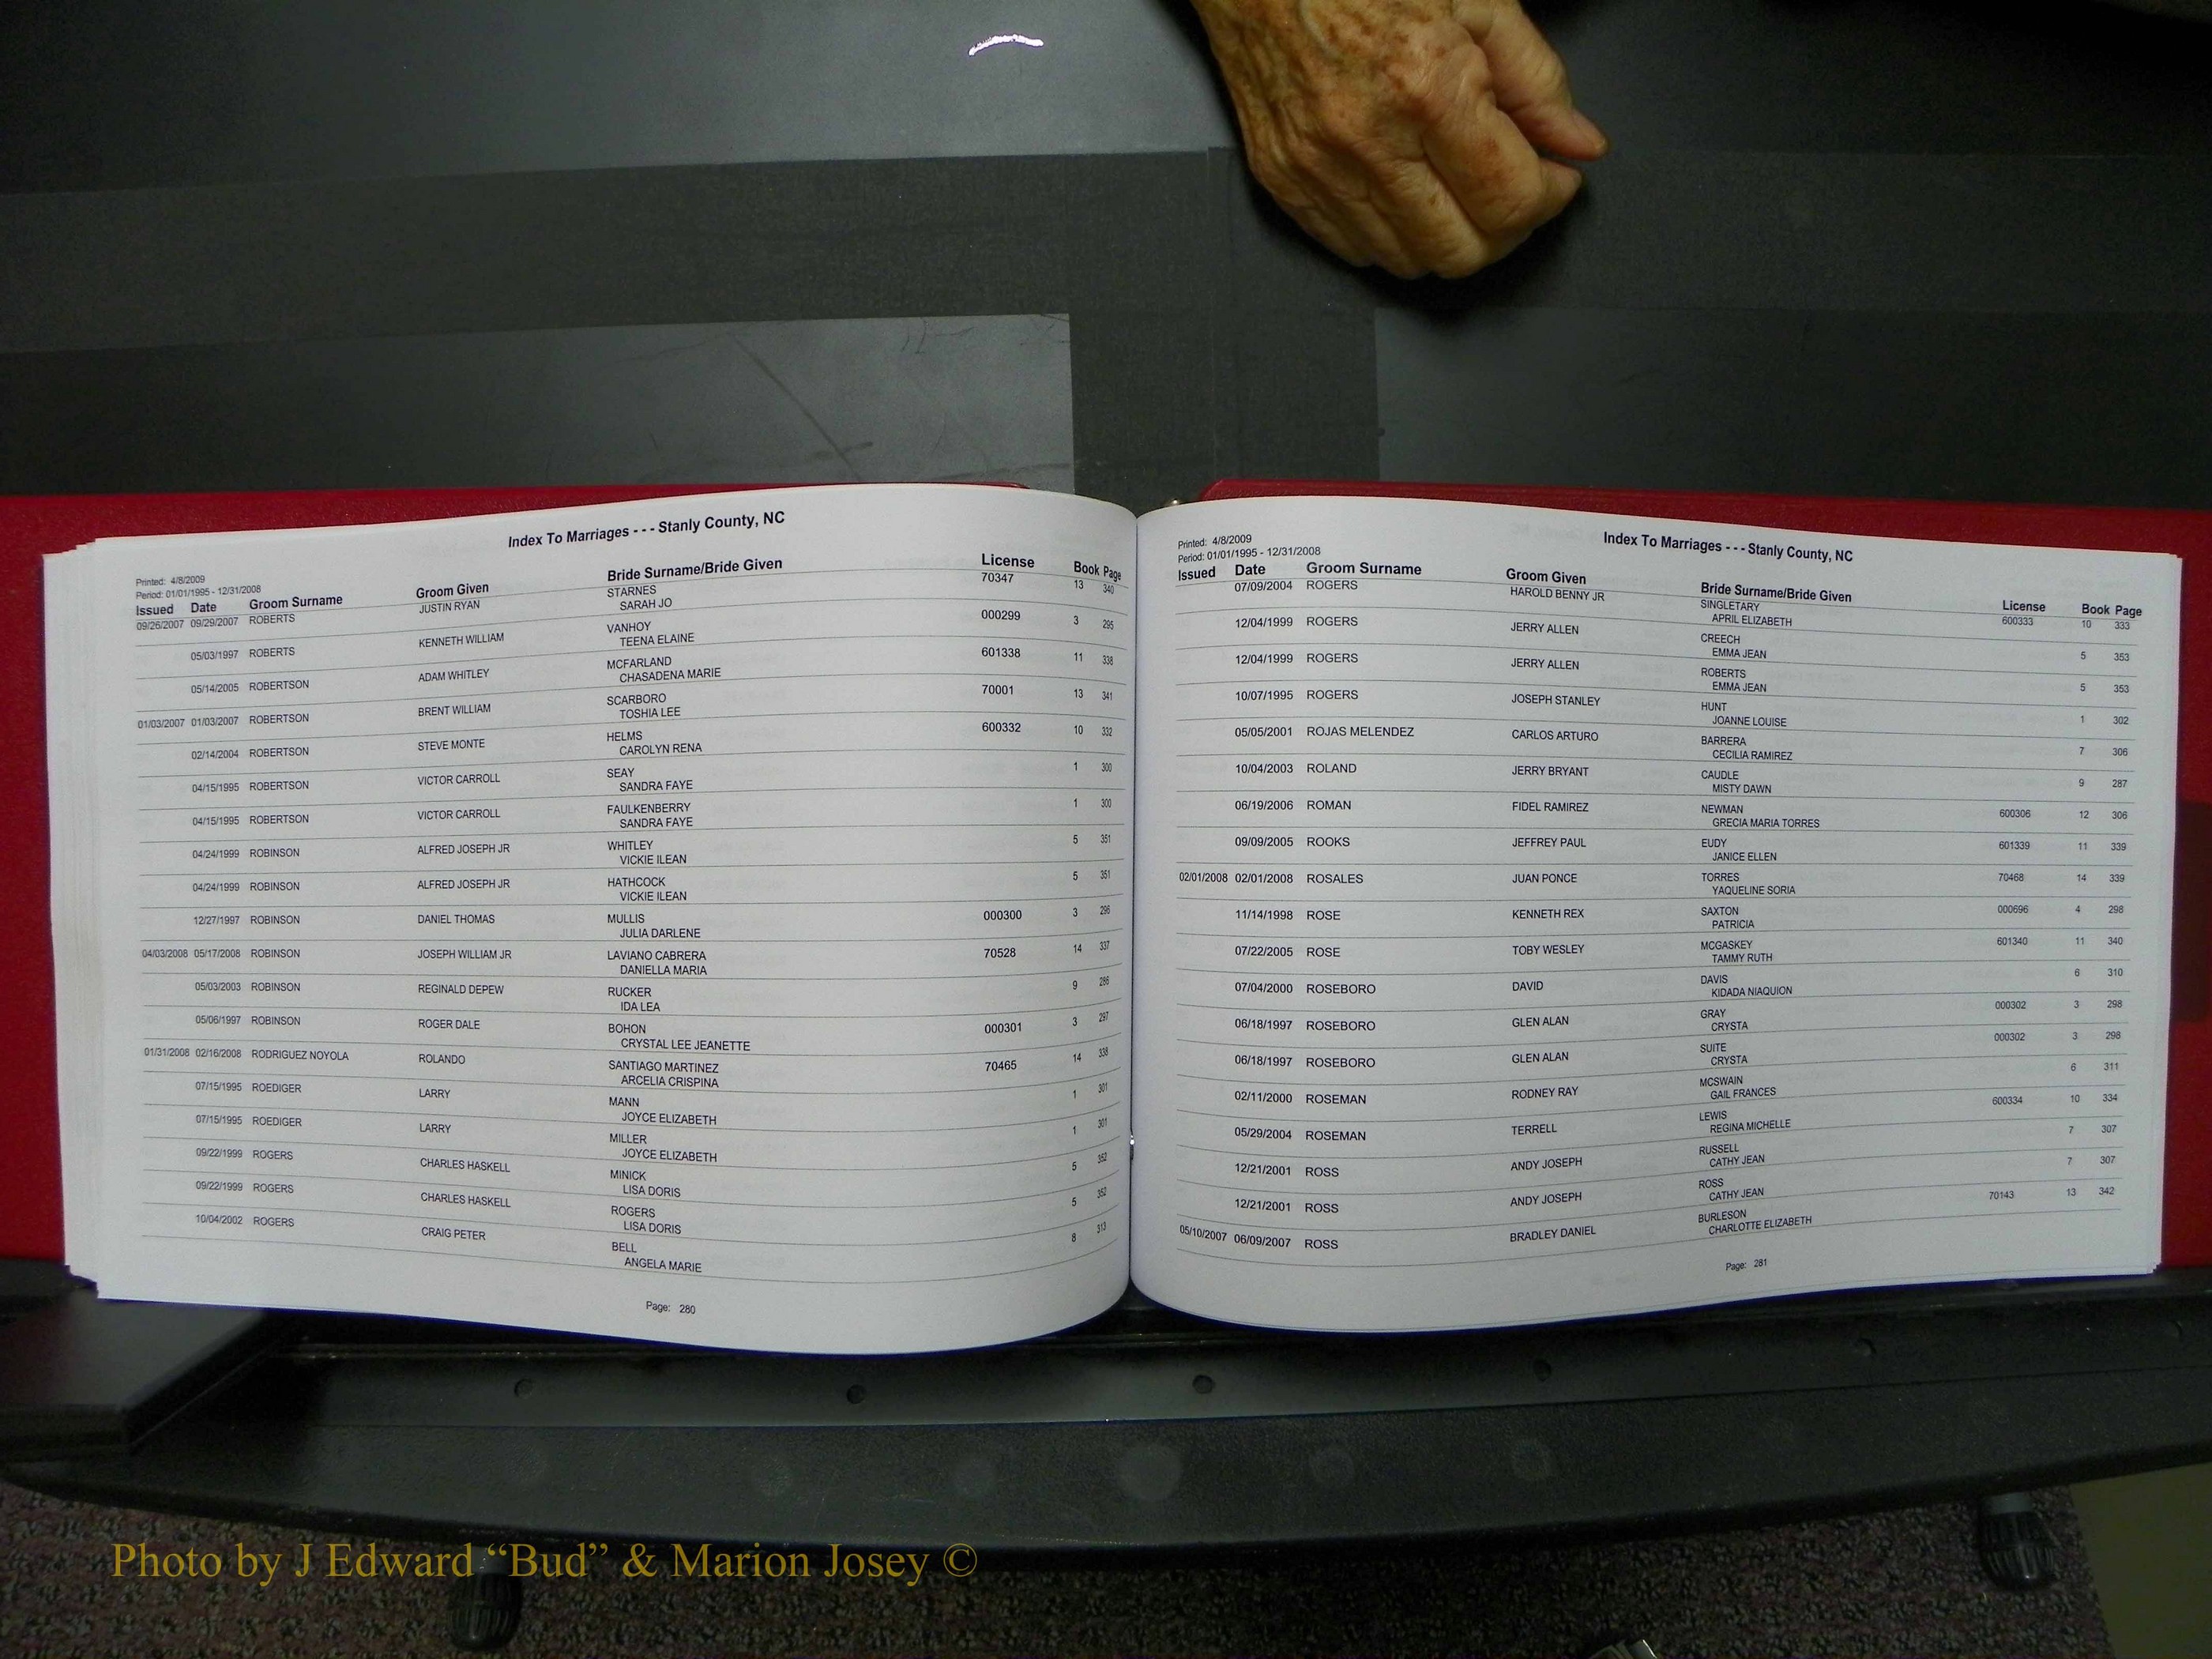 Index To Marriages - - - Stanly County, NC
Printed: 4/8/2009
Period: 01/01/1995 - 12/31/2008
Issued Date Groom Surname Groom Given Bride Surname/Bride Given License Book Page
09/26/2007 09/29/2007 ROBERTS JUSTIN RYAN STARNES 70347 13 340
SARAH JO
05/03/1997 ROBERTS KENNETH WILLIAM VANHOY 000299 3 295
TEENA ELAINE
05/14/2005 ROBERTSON ADAM WHITLEY MCFARLAND 601338 11 338
CHASADENA MARIE
01/03/2007 01/03/2007 ROBERTSON BRENT WILLIAM SCARBORO 70001 13 341
TOSHIA LEE
02/14/2004 ROBERTSON STEVE MONTE HELMS 600332 10 332
CAROLYN RENA
04/15/1995 ROBERTSON VICTOR CARROLL SEAY 1 300
SANDRA FAYE
04/15/1995 ROBERTSON VICTOR CARROLL FAULKENBERRY 1 300
SANDRA FAYE
04/24/1999 ROBINSON ALFRED JOSEPH JR WHITLEY 5 351
VICKIE ILEAN
04/24/1999 ROBINSON ALFRED JOSEPH JR HATHCOCK 5 351
VICKIE ILEAN
12/27/1997 ROBINSON DANIEL THOMAS MULLIS 000300 3 296
JULIA DARLENE
04/03/2008 05/17/2008 ROBINSON JOSEPH WILLIAM JR LAVIANO CABRERA 70528 14 337
DANIELLA MARIA
05/03/2003 ROBINSON REGINALD DEPEW RUCKER 9 286
IDA LEA
05/06/1997 ROBINSON ROGER DALE BOHON 000301 3 297
CRYSTAL LEE JEANETTE
01/31/2008 02/16/2008 RODRIGUEZ NOYOLA ROLANDO SANTIAGO MARTINEZ 70465 14 338
ARCELIA CRISPINA
07/15/1995 ROEDIGER LARRY MANN 1 301
JOYCE ELIZABETH
07/15/1995 ROEDIGER LARRY MILLER 1 301
JOYCE ELIZABETH
09/22/1999 ROGERS CHARLES HASKELL MINICK 5 352
LISA DORIS
09/22/1999 ROGERS CHARLES HASKELL ROGERS 5 352
LISA DORIS
10/04/2002 ROGERS CRAIG PETER BELL 8 313
ANGELA MARIE
Page: 280
Index To Marriages - - - Stanly County, NC
Printed: 4/8/2009
Period: 01/01/1995 - 12/31/2008
Issued Date Groom Surname Groom Given Bride Surname/Bride Given License Book Page
07/09/2004 ROGERS HAROLD BENNY JR SINGLETARY 600333 10 333
APRIL ELIZABETH
12/04/1999 ROGERS JERRY ALLEN CREECH 5 353
EMMA JEAN
12/04/1999 ROGERS JERRY ALLEN ROBERTS 5 353
EMMA JEAN
10/07/1995 ROGERS JOSEPH STANLEY HUNT 1 302
JOANNE LOUISE
05/05/2001 ROJAS MELENDEZ CARLOS ARTURO BARRERA 7 306
CECILIA RAMIREZ
10/04/2003 ROLAND JERRY BRYANT CAUDLE 9 287
MISTY DAWN
06/19/2006 ROMAN FIDEL RAMIREZ NEWMAN 600306 12 306
GRECIA MARIA TORRES
09/09/2005 ROOKS JEFFREY PAUL EUDY 601339 11 339
JANICE ELLEN
02/01/2008 02/01/2008 ROSALES JUAN PONCE TORRES 70468 14 339
YAQUELINE SORIA
11/14/1998 ROSE KENNETH REX SAXTON 000696 4 298
PATRICIA
07/22/2005 ROSE TOBY WESLEY MCGASKEY 601340 11 340
TAMMY RUTH
07/04/2000 ROSEBORO DAVID DAVIS 6 310
KIDADA NIAQUION
06/18/1997 ROSEBORO GLEN ALAN GRAY 000302 3 298
CRYSTA
06/18/1997 ROSEBORO GLEN ALAN SUITE 000302 3 298
CRYSTA
02/11/2000 ROSEMAN RODNEY RAY MCSWAIN 6 311
GAIL FRANCES
05/29/2004 ROSEMAN TERRELL LEWIS 600334 10 334
REGINA MICHELLE
12/21/2001 ROSS ANDY JOSEPH RUSSELL 7 307
CATHY JEAN
12/21/2001 ROSS ANDY JOSEPH ROSS 7 307
CATHY JEAN
05/10/2007 06/09/2007 ROSS BRADLEY DANIEL BURLESON 70143 13 342
CHARLOTTE ELIZABETH
Page: 281
Photo by J Edward “Bud” & Marion Josey ©